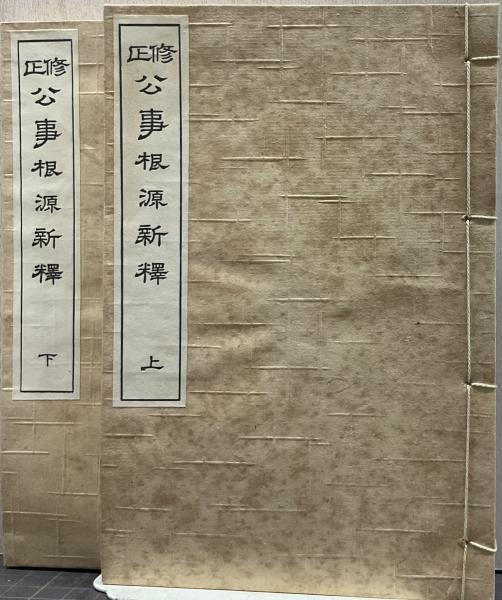 修正公事根源新釋 上
修正公事根源新釋 下